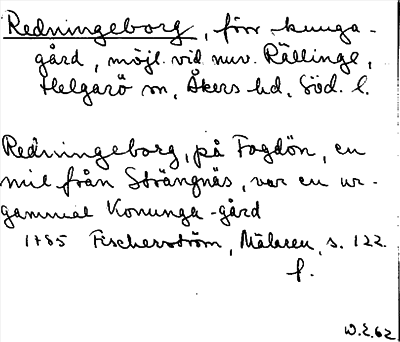 Redningeborg, förr kunga-
gård, möjl. vid nuv. Rällinge,
Helgarö sn, Åkers hd, Söd. l.
Redningeborg, på Fogdön, en
mil från Strängnäs, var en ur-
gammal Konunga-gård
1785 Fischerström, Mälaren, s. 122.
f.
W.E.62